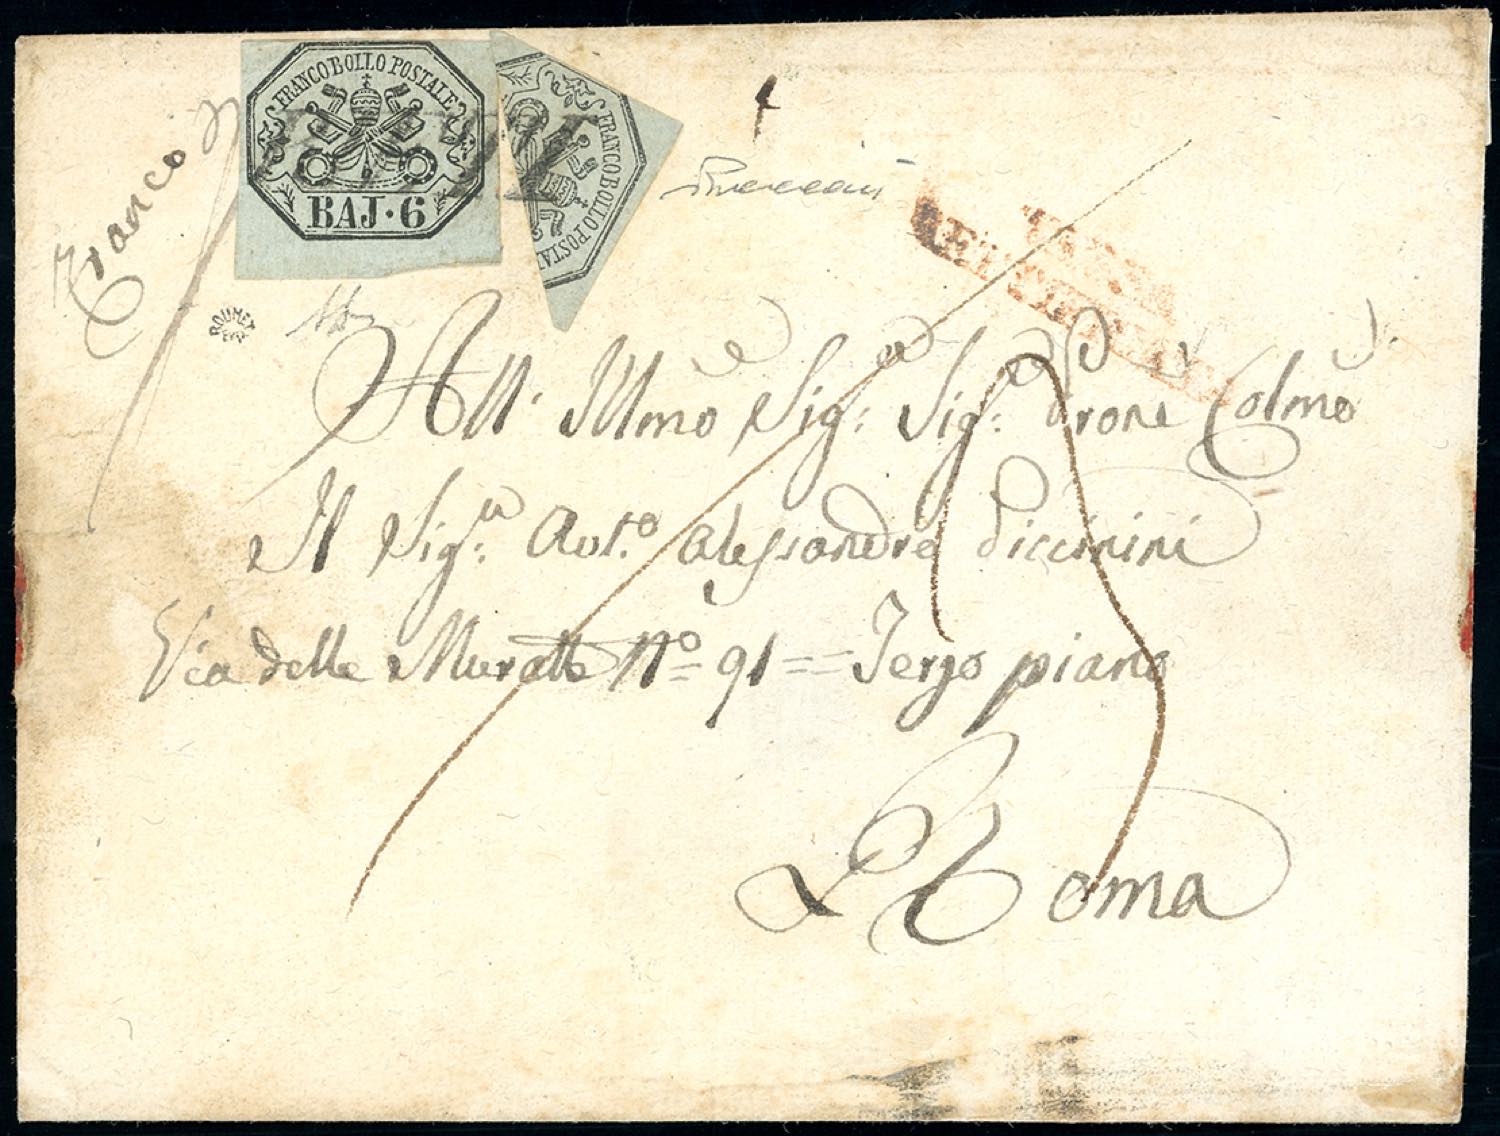 FRANCO BOLLO POSTALE
BAJ·6
FRANCO BOLLO POSTA
Franco
ROUMET
All. Illmo Sig: Sig: Prone Colmo
Il Sig.a Avt.o Alessandro Piccinini
Via delle Muratte No 91 == Terzo piano
Roma